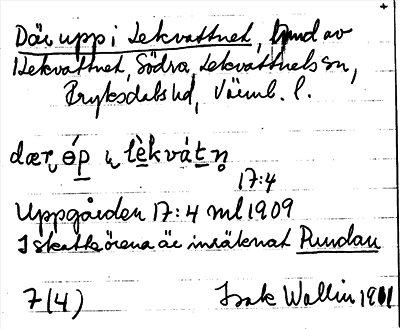 Där uppi Lekvattnet, hmd av
Lekvattnet, Södra, Lekvattnets sn,
Fryksdals hd, Värml. l.
dær ǿp ı lèkvátn̥
17:4
Uppgården 17:4 ml 1909
I skattkörena är inräknat Pundau
7(4)
Isak Wallin 1911